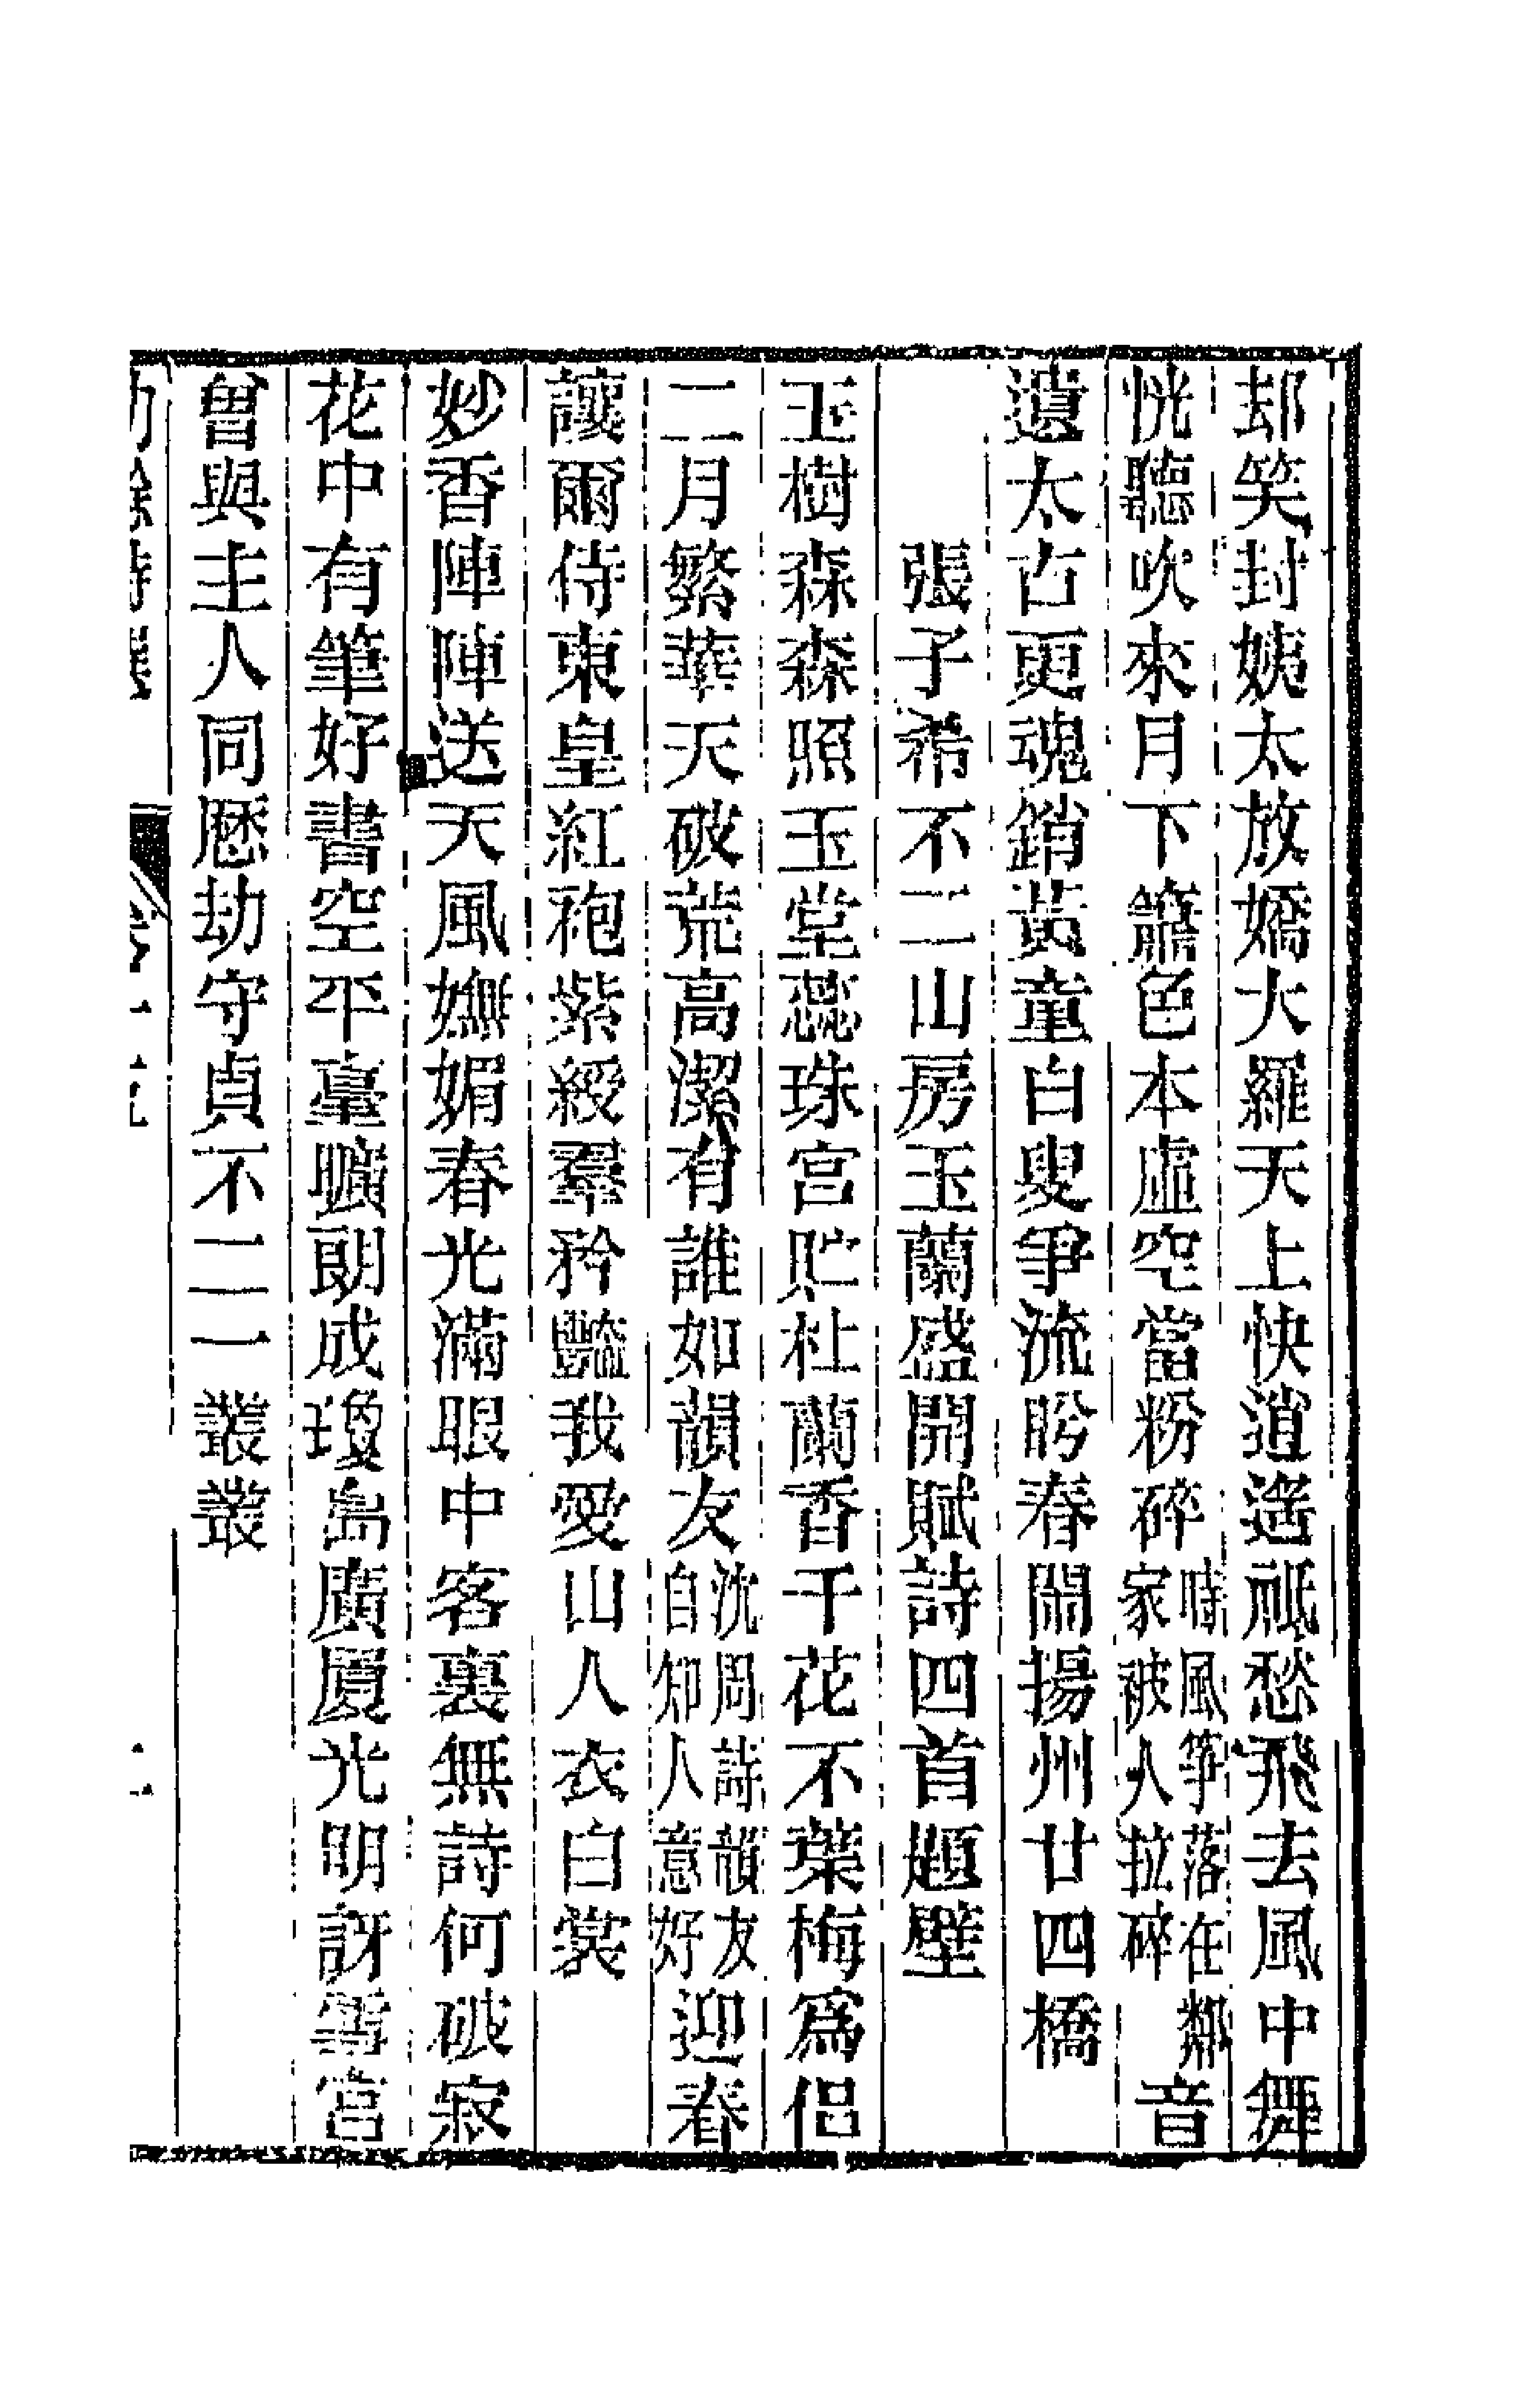 却笑封姨太放嬌大羅天上快逍遙祗愁飛去風中舞
恍聽吹來月下簫色本虛空當粉碎時風箏落在鄰家被人拉碎音
遺太古更魂銷黃童白叟爭流盻春鬧揚州廿四橋
張子希不二山房玉蘭盛開賦詩四首題壁
玉樹森森照玉堂蕊珠宮貯杜蘭香千花不葉梅爲侶
二月繁華天破荒高潔有誰如韻友沈周詩韻友自知人意好迎春
讓爾侍東皇紅袍紫綬羣矜豔我愛山人衣白裳
妙香陣陣送天風嫵媚春光滿眼中客裏無詩何破寂
花中有筆好書空平臺曠朗成瓊島廣厦光明訝雪宮
曾與主人同歷劫守貞不二一叢叢
劫餘詩選